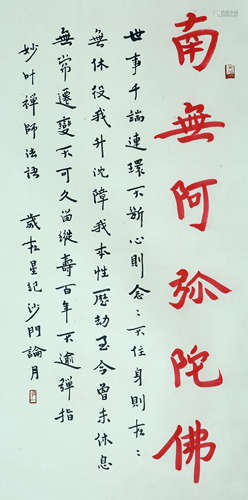 南無阿弥陀佛
世事千端連環不斷心則念〻不住身則在〻
無休役我升沈障我本性歷劫至今曾未休息
無常遷變不可久留縱壽百年不逾彈指
妙叶禪師法語 歲在星紀沙門論月